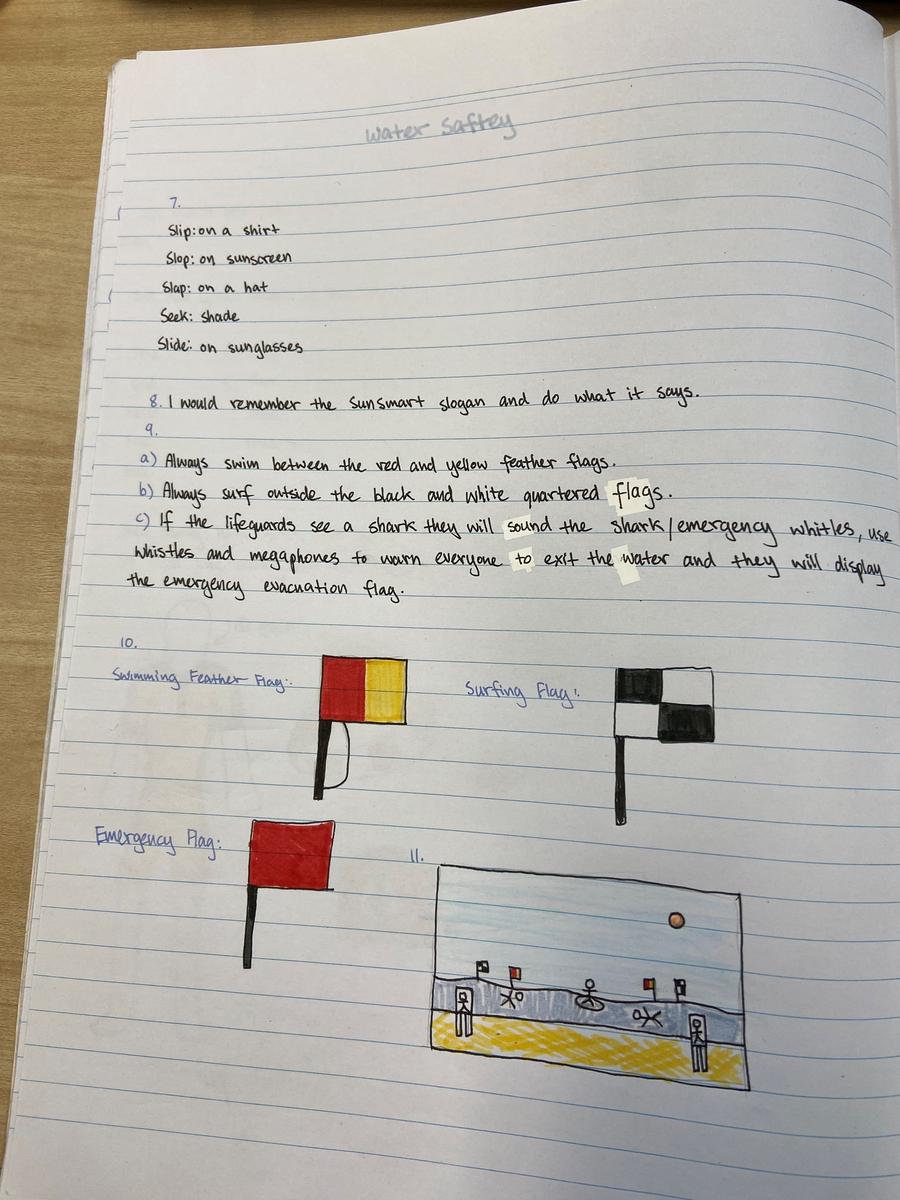 water saftey
7.
Slip: on a shirt
Slop: on sunscreen
Slap: on a hat
Seek: shade
Slide: on sunglasses
8. I would remember the sunsmart slogan and do what it says.
9.
a) Always swim between the red and yellow feather flags.
b) Always surf outside the black and white quartered flags.
c) If the lifeguards see a shark they will sound the shark/emergency whitles, use
whistles and megaphones to warn everyone to exit the water and they will display
the emergency evacuation flag.
10.
Swimming Feather Flag:
Surfing Flag:
Emergency Flag:
11.